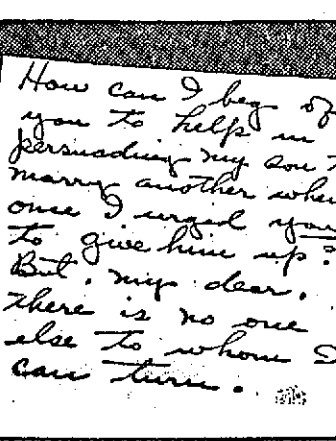 How can I beg of
you to help in
persuading my son t
marry another when
once I urged you
to give him up?
But, my dear,
there is no one
else to whom I
can turn.